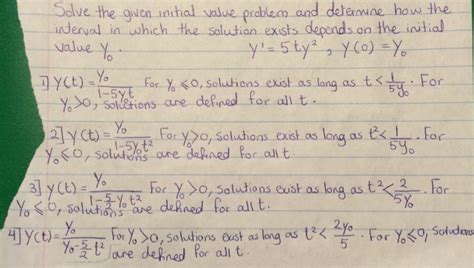 Solve the given initial value problem and determine how the
interval in which the solution exists depends on the initial
value y₀. y' = 5ty², y(0) = y₀
1] y(t) = y₀/(1-5yt) For y₀ ≤ 0, solutions exist as long as t < 1/(5y₀). For
y₀ > 0, solutions are defined for all t.
2] y(t) = y₀/(1-5y₀t²) For y₀ > 0, solutions exist as long as t² < 1/(5y₀). For
y₀ ≤ 0, solutions are defined for all t.
3] y(t) = y₀/(1-5/2 y₀t²) For y₀ > 0, solutions exist as long as t² < 2/(5y₀). For
y₀ ≤ 0, solutions are defined for all t.
4] y(t) = y₀/(y₀-5/2 t²) For y₀ > 0, solutions exist as long as t² < 2y₀/5. For y₀ ≤ 0, solutions
are defined for all t.